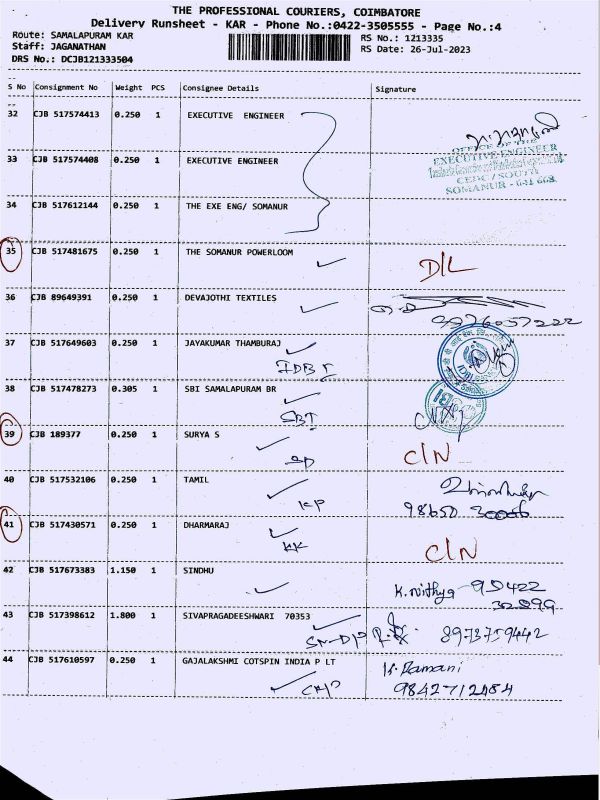 THE PROFESSIONAL COURIERS, COIMBATORE
Delivery Runsheet - KAR - Phone No.:0422-3505555 - Page No.:4
Route: SAMALAPURAM KAR RS No.: 1213335
Staff: JAGANATHAN RS Date: 26-Jul-2023
DRS No.: DCJB121333504
S No Consignment No Weight PCS Consignee Details Signature
32 CJB 517574413 0.250 1 EXECUTIVE ENGINEER
OFFICE OF THE
33 CJB 517574408 0.250 1 EXECUTIVE ENGINEER EXECUTIVE ENGINEER
CEDC / SOUTH
SOMANUR - 641 668
34 CJB 517612144 0.250 1 THE EXE ENG/ SOMANUR
35 CJB 517481675 0.250 1 THE SOMANUR POWERLOOM D/L
36 CJB 89649391 0.250 1 DEVAJOTHI TEXTILES
9976057222
37 CJB 517649603 0.250 1 JAYAKUMAR THAMBURAJ
IDBI
38 CJB 517478273 0.305 1 SBI SAMALAPURAM BR
SBI
39 CJB 189377 0.250 1 SURYA S C/N
SP
40 CJB 517532106 0.250 1 TAMIL
KP 98650
41 CJB 517430571 0.250 1 DHARMARAJ
KK C/N
42 CJB 517673383 1.150 1 SINDHU
K.Nithya - 99422
32899
43 CJB 517398612 1.800 1 SIVAPRAGADEESHWARI 70353
8973759442
44 CJB 517610597 0.250 1 GAJALAKSHMI COTSPIN INDIA P LT K. Ramani
9842712484